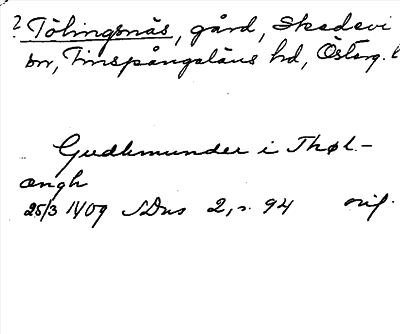 ? Tölingsnäs, gård, Skedevi
sn, Finspångaläns hd, Österg. l
Gudhmunder i Thøl-
ængh
25/3 1409 SDns 2, s. 94 orig.